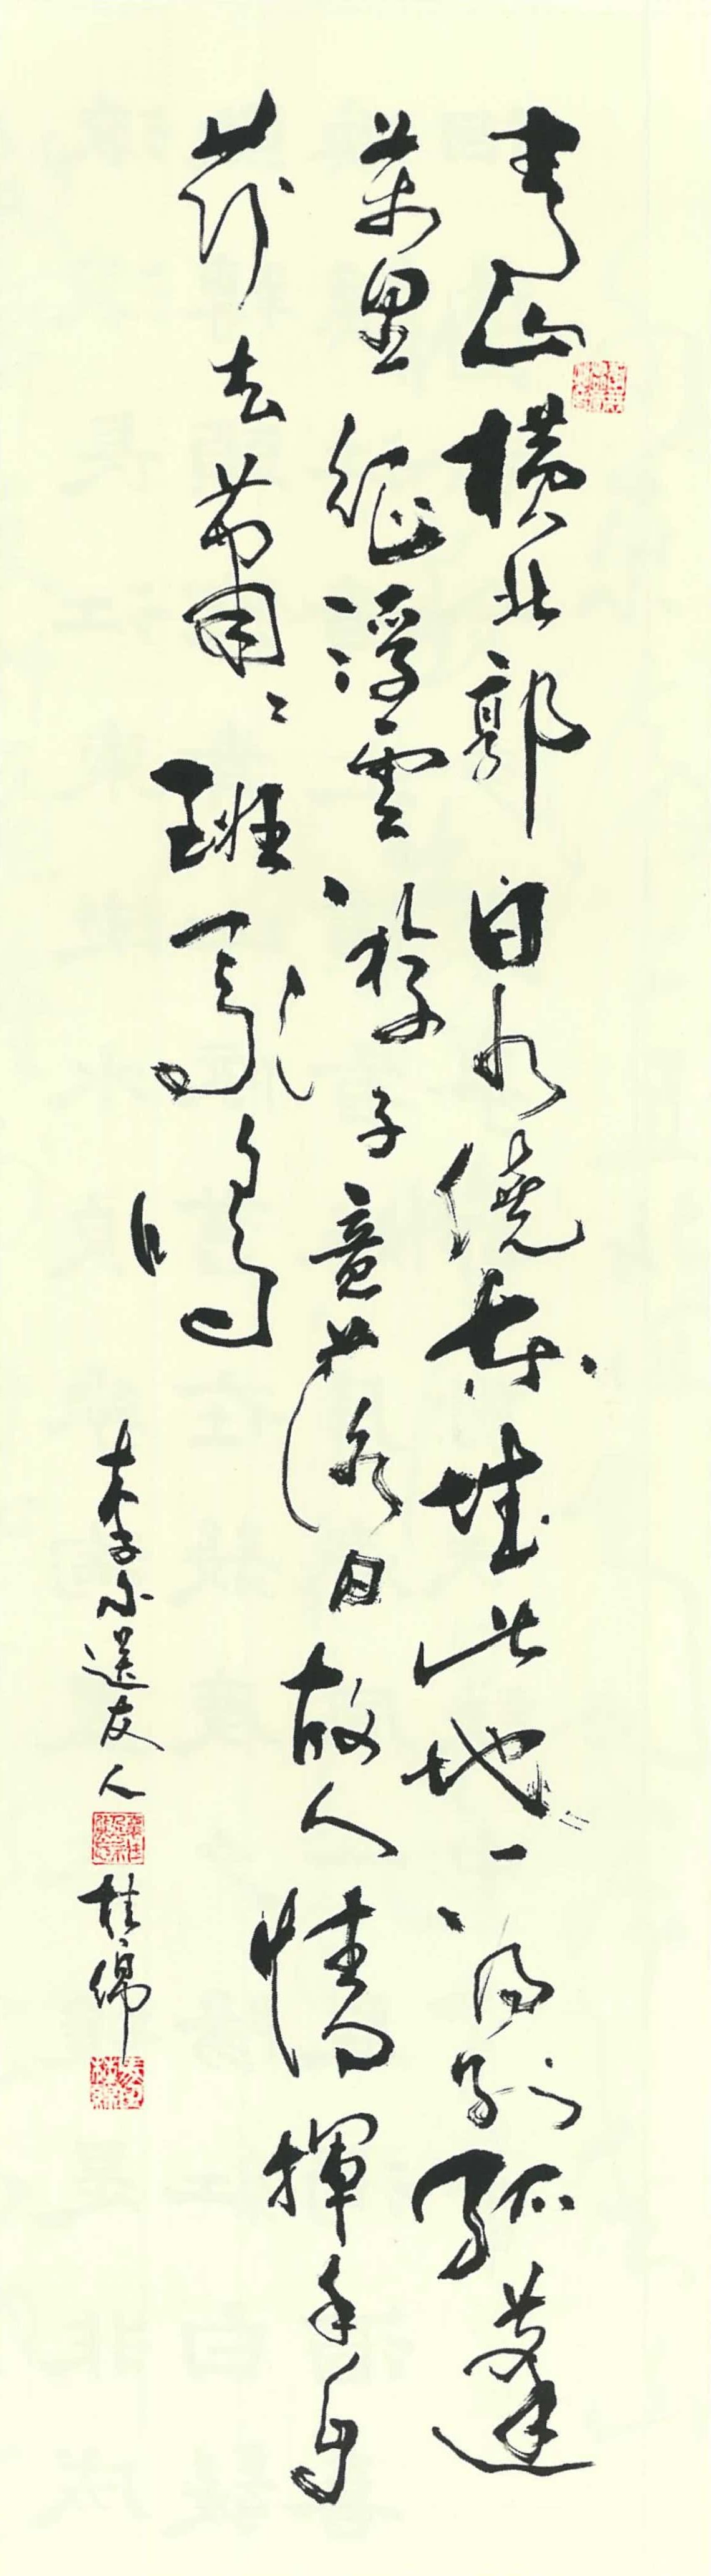 青山橫北郭白水繞東城此地一為別孤蓬
萬里征浮雲游子意落日故人情揮手自
茲去蕭〻班馬鳴
李白送友人
桂綿